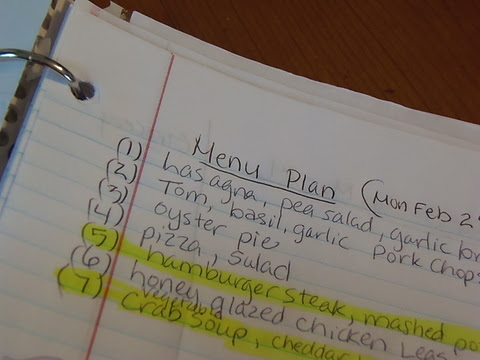 Menu Plan (Mon Feb 2
(1) Lasagna, pea salad, garlic br
(2) Tom, basil, garlic Pork Chops
(3) oyster pie
(4) pizza, salad
(5) hamburger steak, mashed po
(6) honey glazed chicken Legs
vegetable
(7) Crab Soup, cheddar